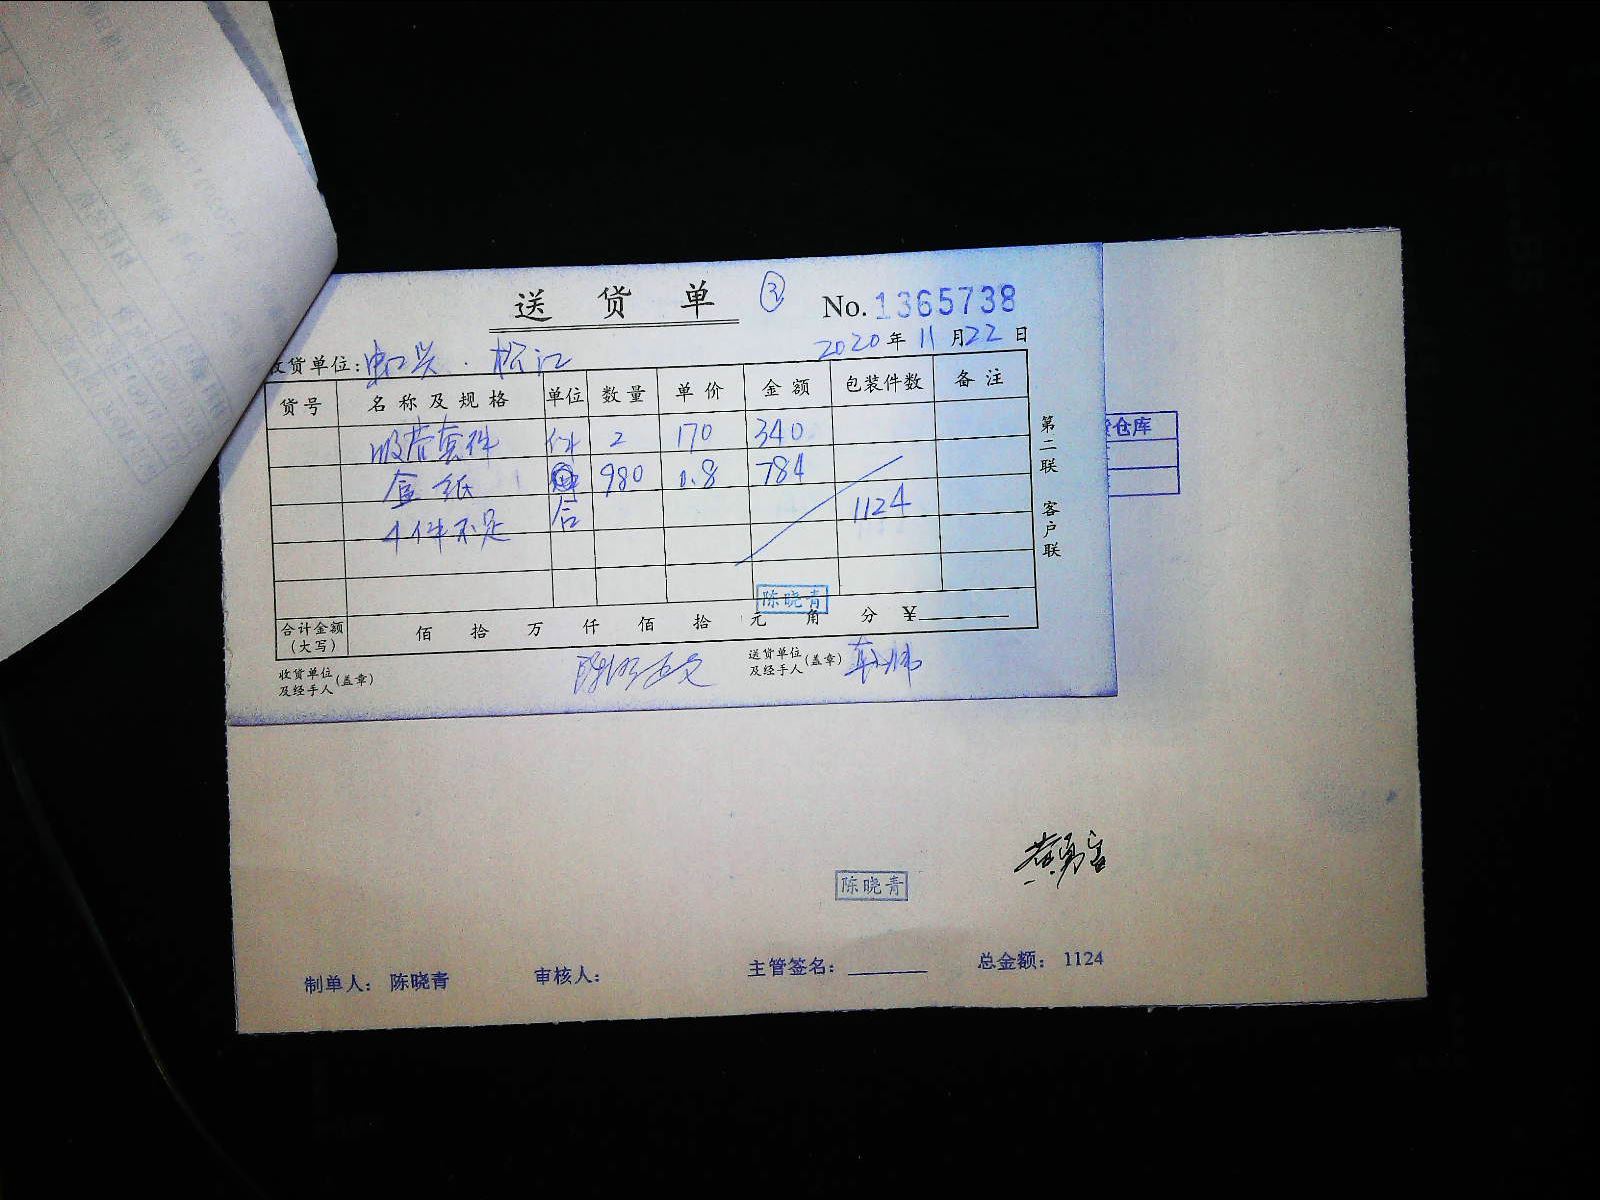 送货单 ③ No. 1365738
2020年11月22日
收货单位: 虹吴·松江
货号 名称及规格 单位 数量 单价 金额 包装件数 备注
吸管套件 件 2 170 340
盒纸 980 0.8 784
4件不足 合 1124
合计金额(大写) 佰 拾 万 仟 佰 拾 元 角 分 ¥
陈晓青
收货单位及经手人(盖章)
送货单位及经手人(盖章)
第二联 客户联
仓库
黄勇富
陈晓青
制单人: 陈晓青 审核人: 主管签名: 总金额: 1124